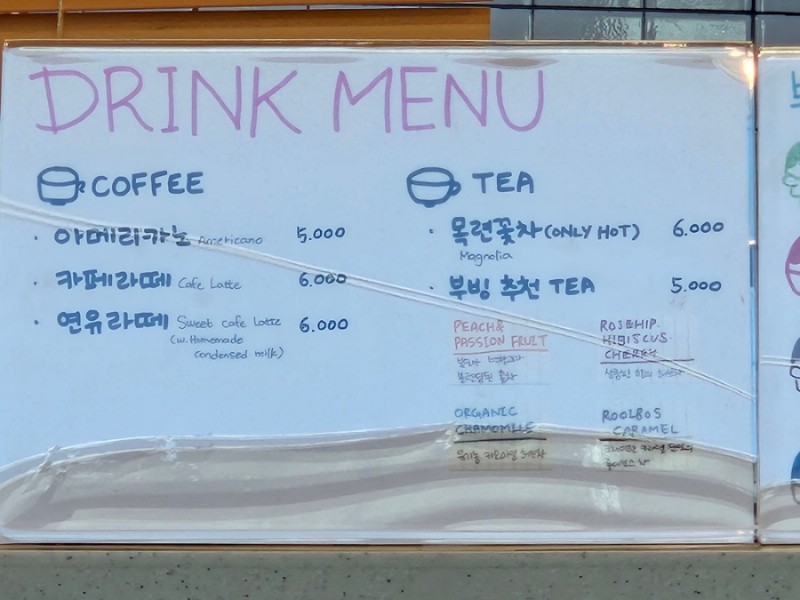 DRINK MENU
COFFEE
· 아메리카노 Americano 5.000
· 카페라떼 Cafe Latte 6.000
· 연유라떼 Sweet cafe Latte 6.000
(w. Homemade
condensed milk)
TEA
· 목련꽃차 (ONLY HOT) 6.000
Magnolia
· 부빙 추천 TEA 5.000
PEACH &
PASSION FRUIT
ROSEHIP.
HIBISCUS.
CHERRY
ORGANIC
CHAMOMILE
유기농 카모마일
ROOIBOS
CARAMEL